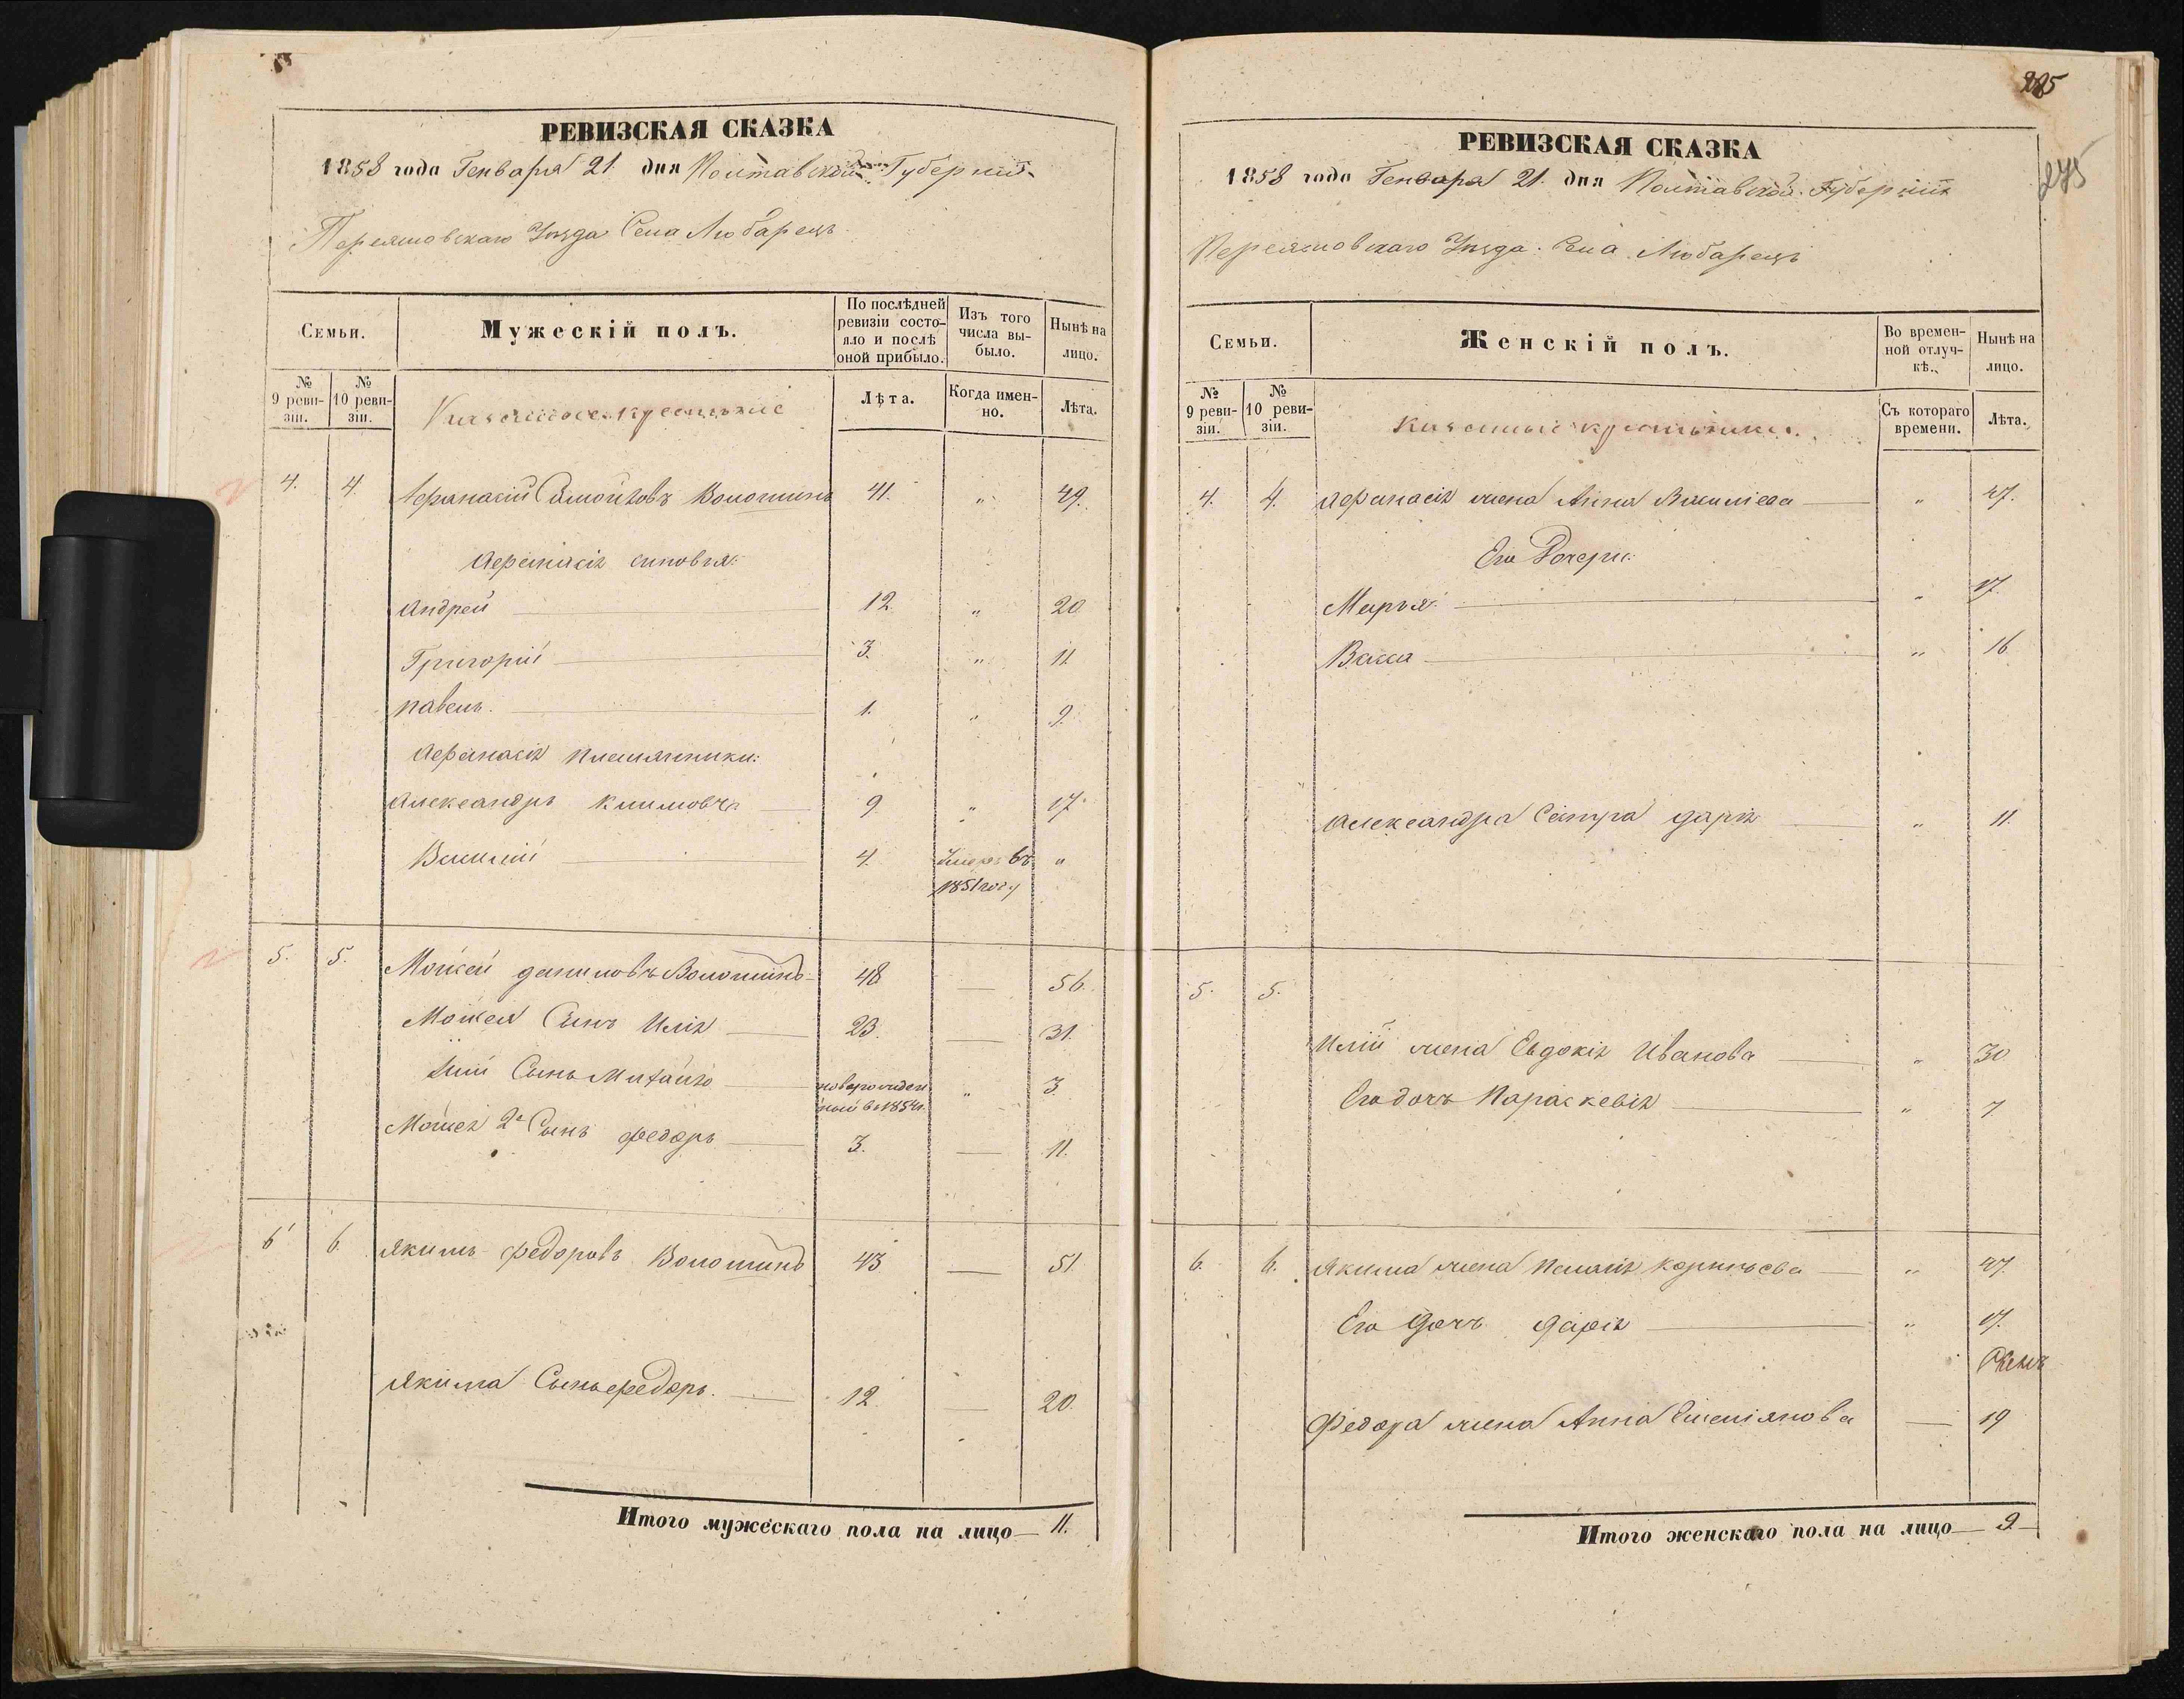 РЕВИЗСКАЯ СКАЗКА
1858 года Генваря 21 дня Полтавской Губерніи
Переясловскаго Уѣзда Села Любарецъ
Семьи.
Мужескій полъ.
По послѣдней ревизіи состояло и послѣ оной прибыло.
Изъ того числа выбыло.
Нынѣ на лицо.
№ 9 ревизіи.
№ 10 ревизіи.
Казенные крестьяне
Лѣта.
Когда именно.
Лѣта.
4. 4. Афанасій Самойловъ Волошинъ 41. „ 49.
Афанасія сыновья:
Андрей 12. „ 20
Григорій 3. „ 11
Павелъ. 1. „ 9.
Афанасія племянники:
Александръ Климовъ 9 „ 17.
Василій 4. Умеръ въ „
1851 году
5. 5. Мойсей Даниловъ Волошинъ 48 — 56.
Мойсея Сынъ Илія 23. — 31.
Иліи Сынъ Михайло новорожден „ 3.
ный въ 1854 г.
Мойсея 2й Сынъ Федоръ 3. — 11.
6 6. Якимъ Федоровъ Волошинъ 43 — 51.
Якима Сынъ Федоръ. 12. — 20.
Итого мужескаго пола на лицо — 11.
275
РЕВИЗСКАЯ СКАЗКА
1858 года Генваря 21. дня Полтавской Губерніи
Переясловскаго Уѣзда. Села Любарецъ
Семьи.
Женскій полъ.
Во временной отлучкѣ.
Нынѣ на лицо.
№ 9 ревизіи.
№ 10 ревизіи.
Казенные крестьянки.
Съ котораго времени.
Лѣта.
4. 4. Афанасія жена Анна Василіева „ 47.
Его Дочери:
Марья „ 17.
Васса „ 16
Александра Сестра Дарія „ 11.
5. 5.
Иліи жена Евдокія Иванова „ 30
Его дочь Параскевія „ 7
6. 6. Якима жена Пелагія Корнѣева „ 47.
Его Дочь Дарія „ 17.
Федора жена Анна Емеліянова — 19
Итого женскаго пола на лицо — 9 —